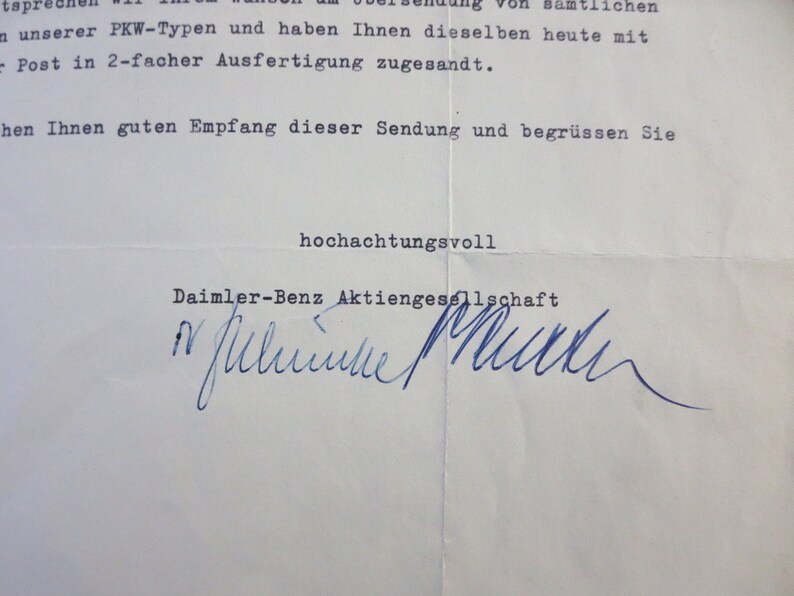 tsprechen wir Ihrem Wunsch um Übersendung von sämtlichen
n unserer PKW-Typen und haben Ihnen dieselben heute mit
r Post in 2-facher Ausfertigung zugesandt.
hen Ihnen guten Empfang dieser Sendung und begrüssen Sie
hochachtungsvoll
Daimler-Benz Aktiengesellschaft